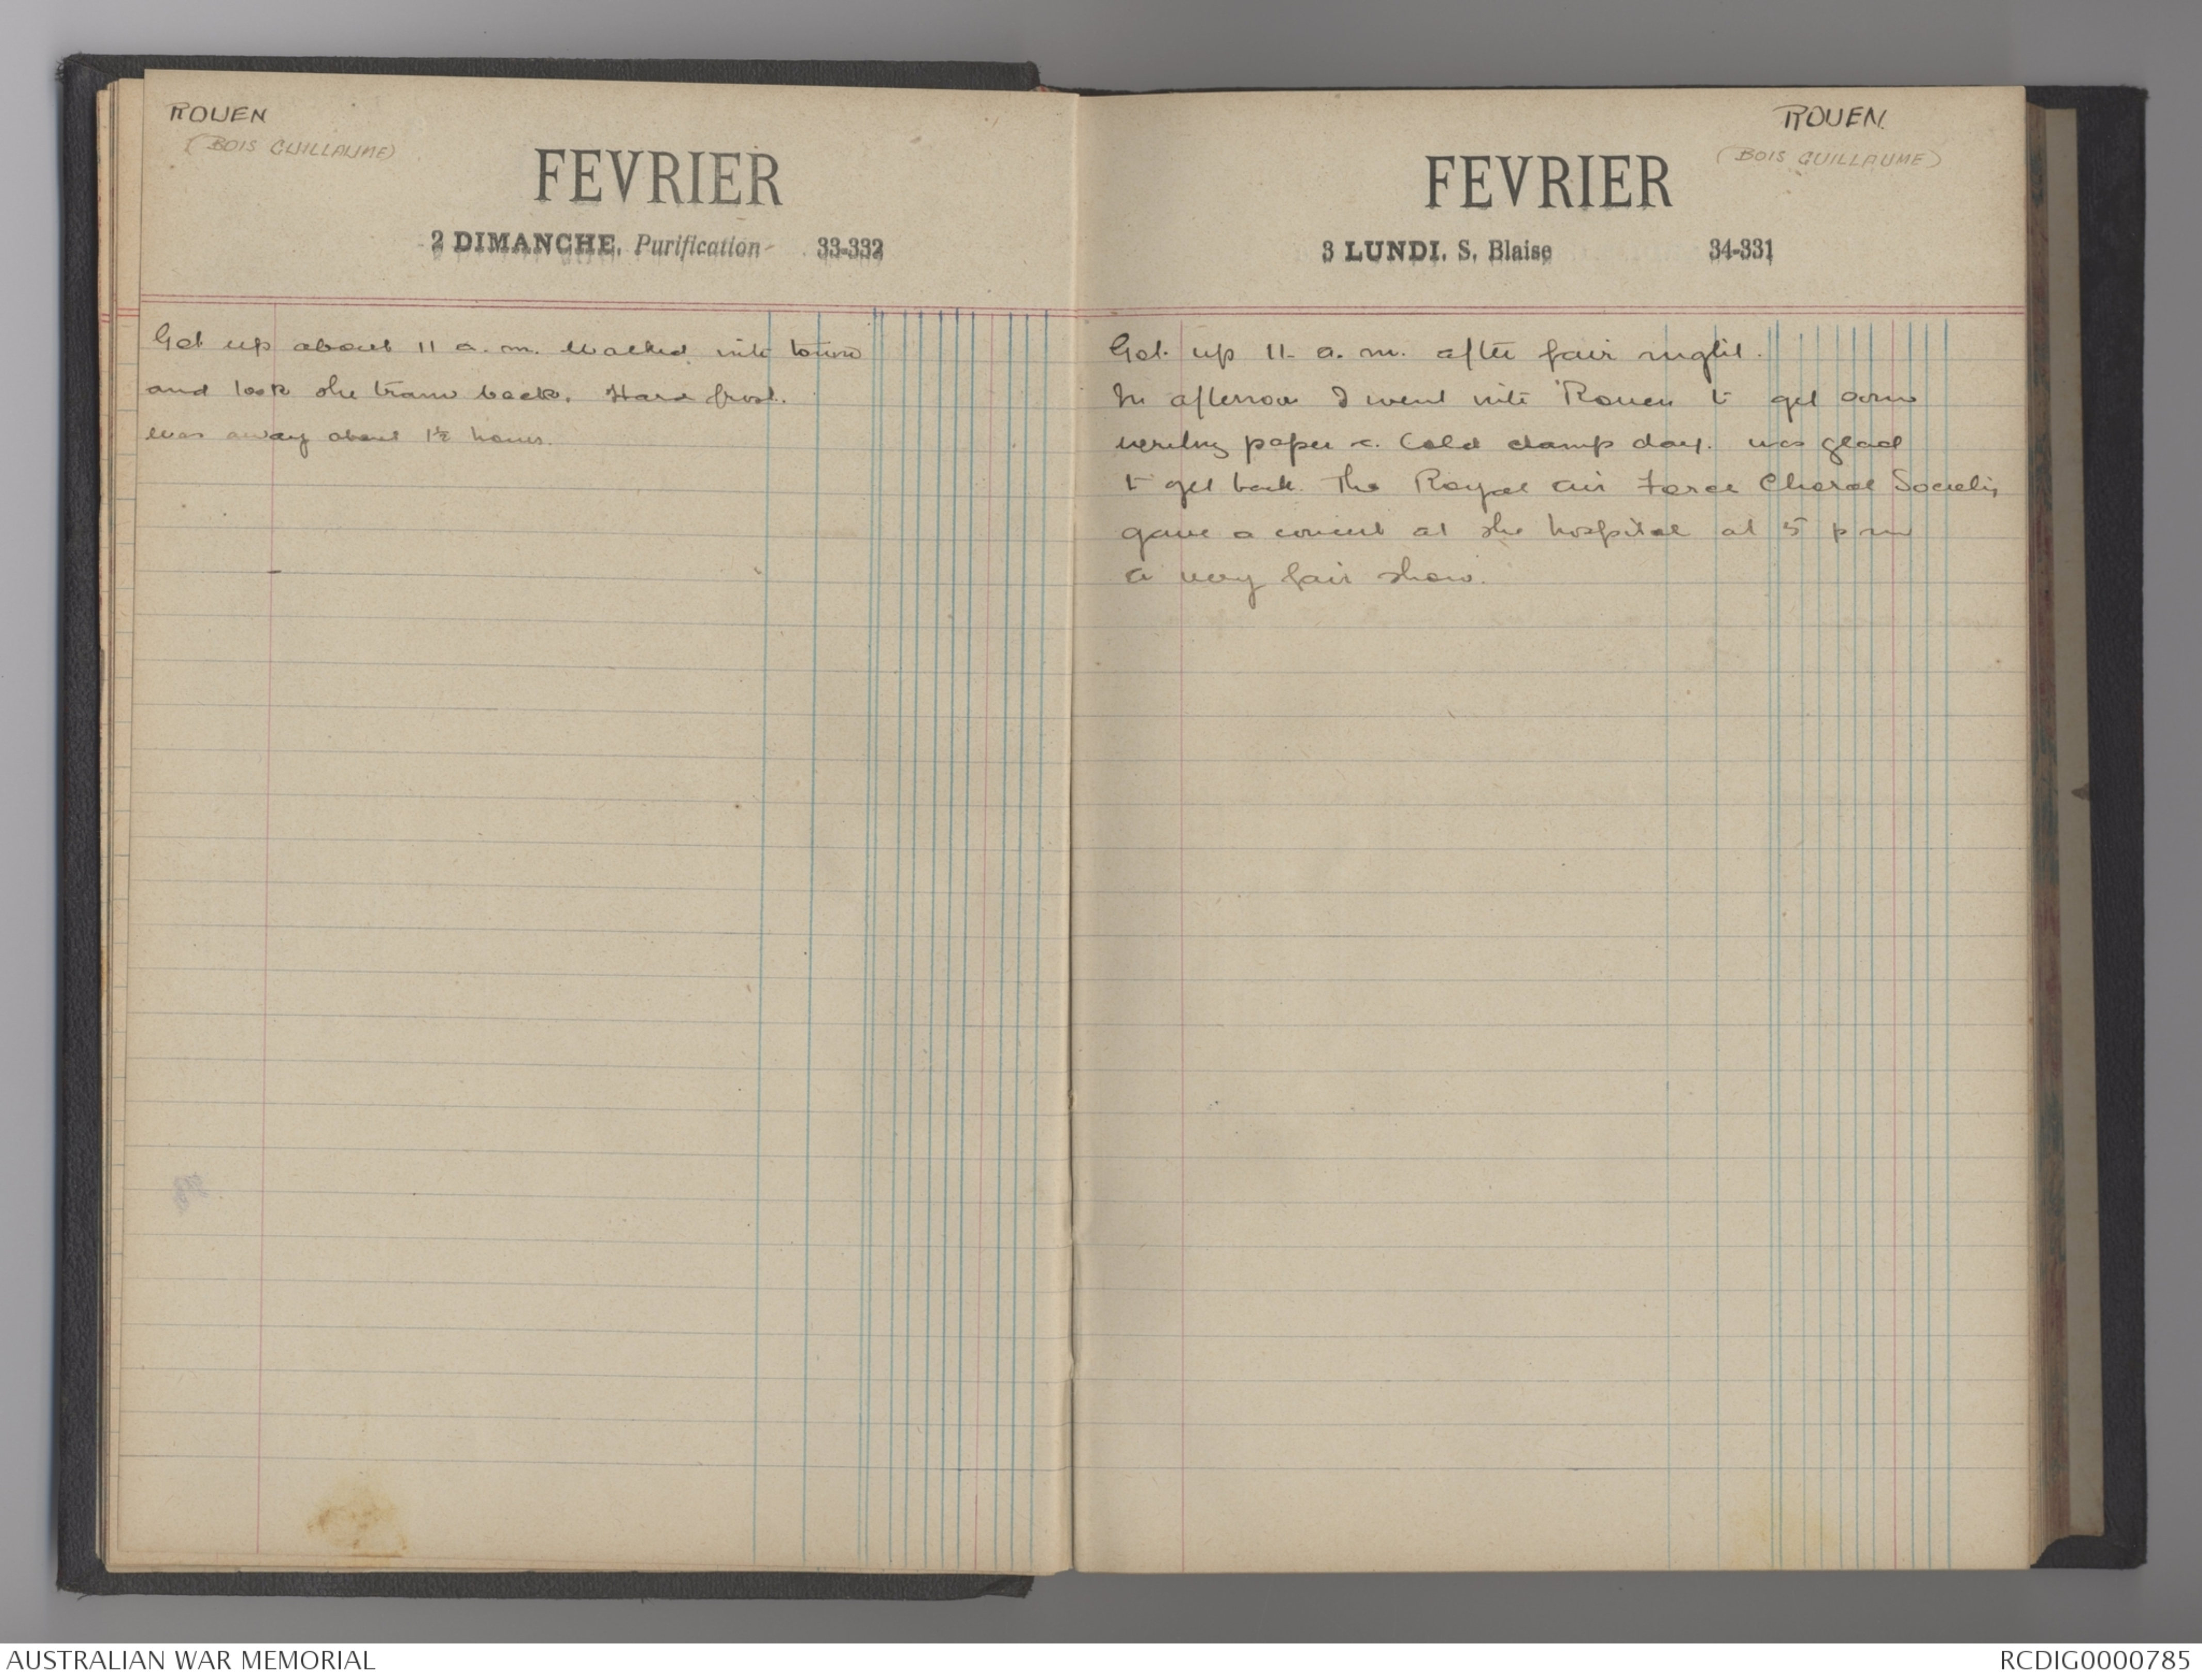 ROUEN
(BOIS GUILLAUME)
FEVRIER
2 DIMANCHE. Purification 33-332
Got up about 11 a.m. Walked into town
and took the tram back. Hard frost.
was away about 1½ hours.
ROUEN.
(BOIS GUILLAUME)
FEVRIER
3 LUNDI. S. Blaise 34-331
Got up 11 a.m. after fair night.
In afternoon I went into Rouen to get some
writing paper &c. Cold damp day. was glad
to get back. The Royal Air Force Choral Society
gave a concert at the hospital at 5 pm
a very fair show.
AUSTRALIAN WAR MEMORIAL
RCDIG0000785